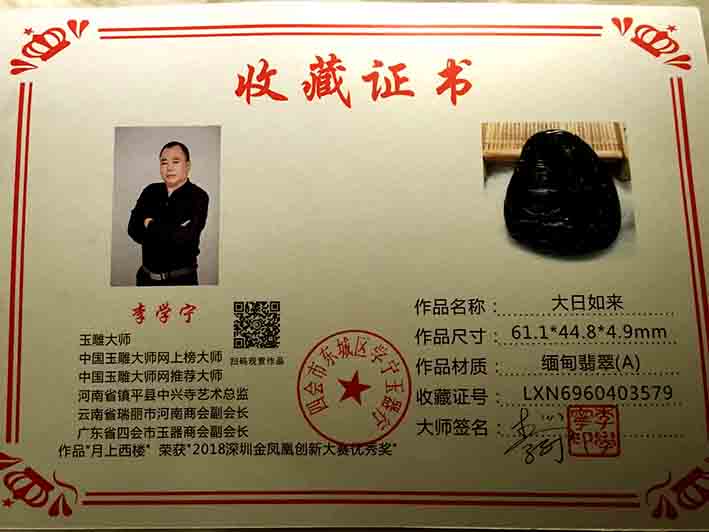 收藏证书
李学宁
扫码观赏作品
玉雕大师
中国玉雕大师网上榜大师
中国玉雕大师网推荐大师
河南省镇平县中兴寺艺术总监
云南省瑞丽市河南商会副会长
广东省四会市玉器商会副会长
作品"月上西楼" 荣获"2018深圳金凤凰创新大赛优秀奖"
四会市东城区学宁玉器行
作品名称：大日如来
作品尺寸：61.1*44.8*4.9mm
作品材质：缅甸翡翠(A)
收藏证号：LXN6960403579
大师签名：